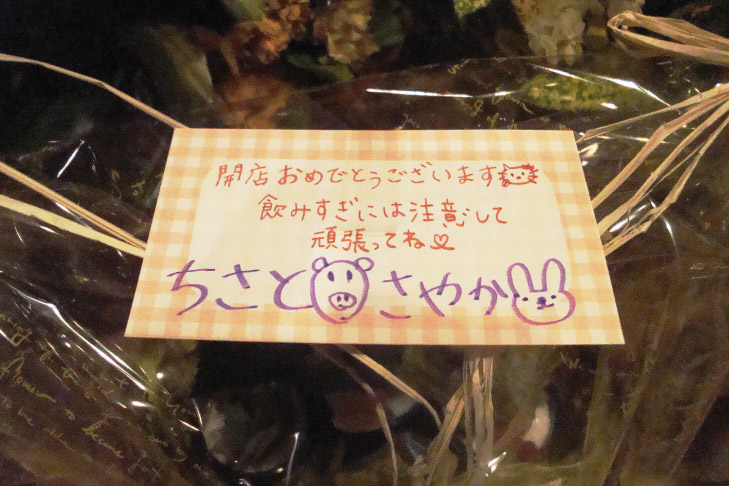 開店おめでとうございます
飲みすぎには注意して
頑張ってね♡
ちさと さやか